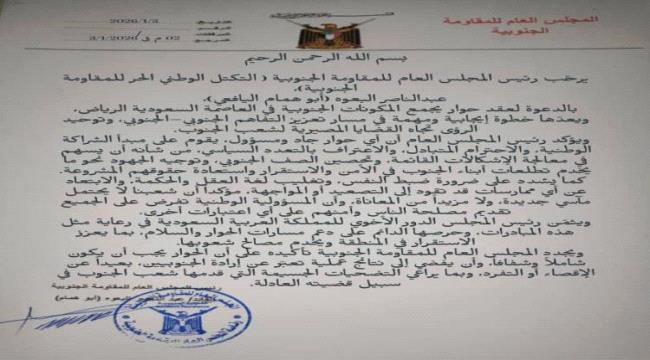 المجلس العام للمقاومة الجنوبية
2026/1/3
بسم الله الرحمن الرحيم
يرحب رئيس المجلس العام للمقاومة الجنوبية ( التكتل الوطني الحر للمقاومة الجنوبية).
عبدالناصر البعوه (أبو همام اليافعي).
بالدعوة لعقد حوار يجمع المكونات الجنوبية في العاصمة السعودية الرياض،
ويعدها خطوة إيجابية ومهمة في مسار تعزيز التفاهم الجنوبي–الجنوبي، وتوحيد
الرؤى تجاه القضايا المصيرية لشعب الجنوب.
ويؤكد رئيس المجلس العام أن أي حوار جاد ومسؤول، يقوم على مبدأ الشراكة
الوطنية، والاحترام المتبادل، والاعتراف بالتعدد السياسي، من شأنه أن يسهم
في معالجة الإشكالات القائمة، وتحصين الصف الجنوبي، وتوجيه الجهود نحو ما
يخدم تطلعات أبناء الجنوب في الأمن والاستقرار واستعادة حقوقهم المشروعة.
كما شدد على ضرورة ضبط النفس، وتغليب لغة العقل والحكمة، والابتعاد
عن أي ممارسات قد تقود إلى التصعيد أو المواجهة، مؤكداً أن شعبنا لا يحتمل
مآسي جديدة، ولا مزيداً من المعاناة، وأن المسؤولية الوطنية تفرض على الجميع
تقديم مصلحة الناس وأمنهم على أي اعتبارات أخرى.
ويثمن رئيس المجلس الدور الأخوي للمملكة العربية السعودية في رعاية مثل
هذه المبادرات، وحرصها الدائم على دعم مسارات الحوار والسلام، بما يعزز
الاستقرار في المنطقة ويخدم مصالح شعوبها.
ويجدد المجلس العام للمقاومة الجنوبية تأكيده على أن الحوار يجب أن يكون
شاملاً وشفافاً، وأن يفضي إلى نتائج عملية تعبر عن إرادة الجنوبيين، بعيداً عن
الإقصاء أو التفرد، وبما يراعي التضحيات الجسيمة التي قدمها شعب الجنوب في
سبيل قضيته العادلة.
رئيس المجلس العام للمقاومة الجنوبية
البعوه (أبو همام)